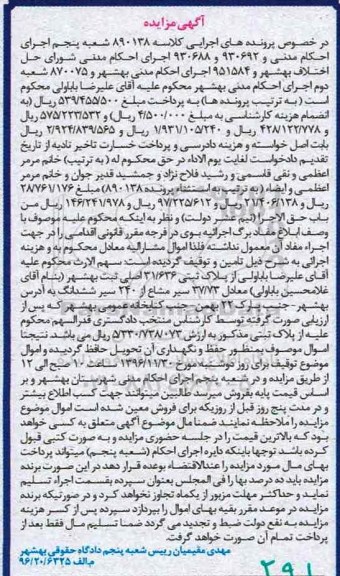 آگهی مزایده
در خصوص پرونده های اجرایی کلاسه ۸۹۰۱۳۸ شعبه پنجم اجرای
احکام مدنی و ۹۳۰۶۹۲ و ۹۳۰۶۸۸ اجرای احکام مدنی شورای حل
اختلاف بهشهر و ۹۵۱۵۸۴ اجرای احکام مدنی بهشهر و ۸۷۰۰۷۵ شعبه
دوم اجرای احکام مدنی بهشهر محکوم علیه آقای علیرضا بابلولی محکوم
است ( به ترتیب پرونده ها) به پرداخت مبلغ ۵۳۹/۴۵۵/۵۰۰ ریال (به
انضمام هزینه کارشناسی به مبلغ ۴/۵۰۰/۰۰۰ ریال) و ۵۷۵/۲۲۳/۵۳۲ و
۴۲۸/۱۲۲/۷۷۸ و ۱/۹۳۱/۱۰۵/۲۴۰ ریال و ۲/۹۲۴/۸۳۹/۵۶۵ ریال از
بابت اصل خواسته و هزینه دادرسی و پرداخت خسارت تاخیر تادیه از تاریخ
تقدیم دادخواست لغایت یوم الاداء در حق محکوم له ( به ترتیب) خانم مرمر
اعظمی و نقی قاسمی و رشید فلاح نژاد و جمشید قدیر جوان و خانم مرمر
اعظمی و ایضاء (به ترتیب به استثناء پرونده ۸۹۰۱۳۸) مبلغ ۲۸۷۶۱/۱۷۶
ریال و ۲۱/۴۰۶/۱۳۸ ریال و ۹۷/۲۲۵/۶۱۲ ریال و ۱۴۶/۲۴۱/۹۷۸ ریال من
باب حق الاجرا (نیم عشر دولت) و نظر به اینکه محکوم علیه موصوف با
وصف ابلاغ مفاد برگ اجرائیه بوی در فرجه مقرر قانونی اقدامی را در جهت
اجراء مفاد آن معمول نداشته فلذا اموال مشارالیه معادل محکوم به و هزینه
اجرائی به شرح ذیل تامین و توقیف گردیده است: سهم الارث محکوم علیه
آقای علیرضا بابلولی از پلاک ثبتی ۳۱/۶۳۶ اصلی ثبت بهشهر (بنام آقای
غلامحسین بابلولی) معادل ۳۷/۷۳ سیر مشاع از ۲۴۰ سیر ششدانگ به آدرس
بهشهر - جنب پارک ۲۲ بهمن- جنب کتابخانه عمومی بهشهر که پس از
ارزیابی صورت گرفته توسط کارشناس منتخب دادگستری قدرالسهم محکوم
علیه از پلاک ثبتی مذکور به ارزش ۵/۳۳۰/۷۳۸/۰۷۳ ریال می باشد نتیجتا
اموال موصوف بمنظور حفظ و نگهداری آن تحویل حافظ گردیده و اموال
موضوع توقیف برای روز دوشنبه مورخ ۱۳۹۶/۱۱/۳۰ ساعت ۱۰ صبح الی 12
از طریق مزایده و در شعبه پنجم اجرای احکام مدنی شهرستان بهشهر و بر
اساس قیمت پایه بفروش میرسد طالبین میتوانند جهت کسب اطلاع بیشتر
و در مدت پنج روز قبل از روزیکه برای فروش معین شده است اموال موضوع
مزایده را ملاحظه نمایند ضمنا مال موضوع آگهی متعلق به کسی خواهد
بود که بالاترین قیمت را در جلسه حضوری مزایده و به صورت کتبی قبول
کرده باشد توجها باینکه دایره اجرای احکام (شعبه پنجم) میتواند پرداخت
بهای مال مورد مزایده را عندالاقتضاء بوعده قرار دهد در این صورت برنده
مزایده باید ده درصد بها را فی المجلس بعنوان سپرده بقسمت اجراء تسلیم
نماید و حداکثر مهلت مزبور از یکماه تجاوز نخواهد کرد و در صورتیکه برنده
مزایده در موعد مقرر بقیه بهای اموال را نپردازد سپرده پس از کسر هزینه
مزایده به نفع دولت ضبط و تجدید می گردد ضمنا تسلیم مال فقط بعد از
پرداخت تمام آن صورت خواهد گرفت.
مهدی مقیمیان رییس شعبه پنجم دادگاه حقوقی بهشهر
م.الف ۹۶/۲۰/۶۳۳۵
۲۹۱